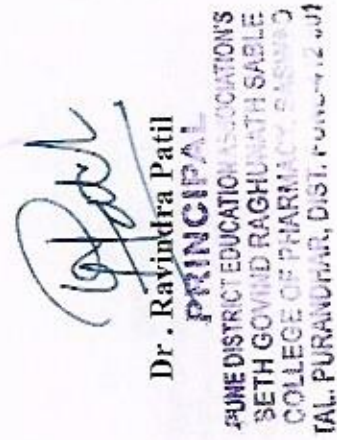 Dr . Ravindra Patil
PRINCIPAL
PUNE DISTRICT EDUCATION ASSOCIATION'S
SETH GOVIND RAGHUNATH SABLE
COLLEGE OF PHARMACY,
TAL. PURANDHAR, DIST.